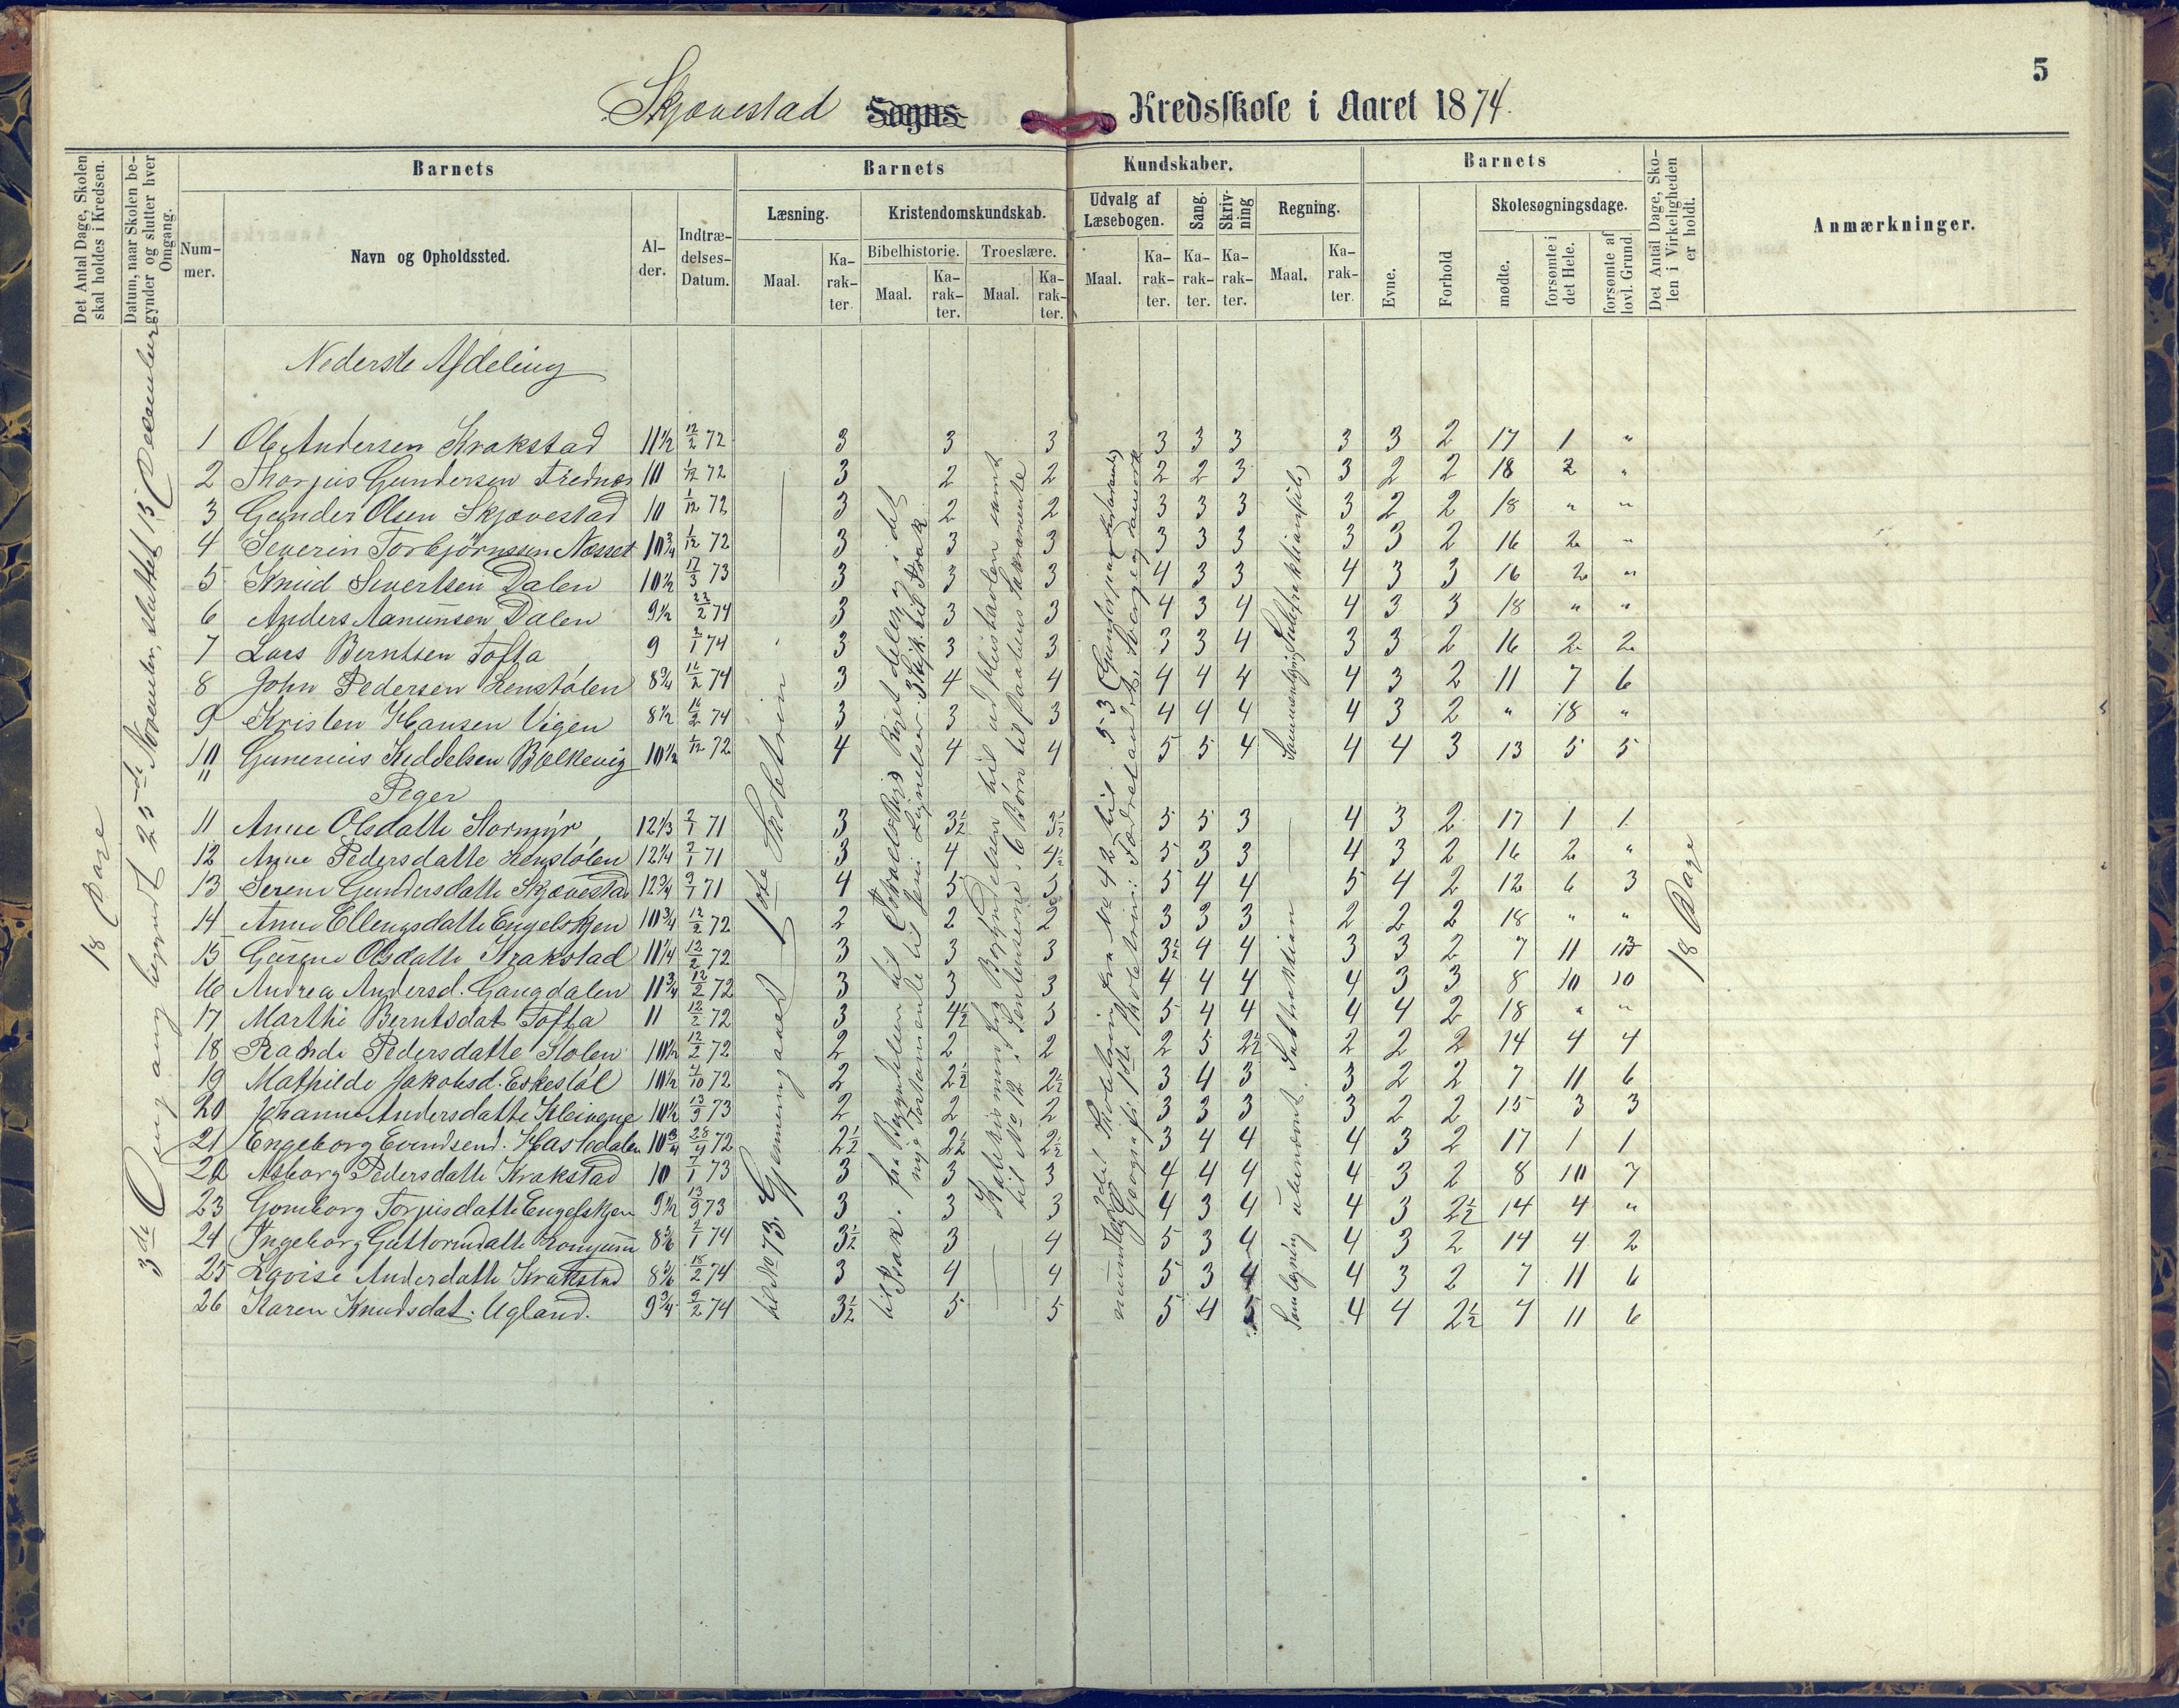 5
Skjævestad Sogns- Kredsskole i Aaret 1874.
Det Antal Dage, Skolen skal holdes i Kredsen.
Datum, naar Skolen begynder og slutter hver Omgang.
Barnets
Nummer.
Navn og Opholdssted.
Alder.
Indtrædelses-Datum.
Barnets Kundskaber.
Læsning.
Maal.
Karakter.
Kristendomskundskab.
Bibelhistorie.
Maal.
Karakter.
Troeslære.
Maal.
Karakter.
Udvalg af Læsebogen.
Maal.
Karakter.
Sang.
Karakter.
Skrivning
Karakter.
Regning.
Maal.
Karakter.
Barnets
Evne.
Forhold
Skolesøgningsdage.
mødte.
forsømte i det Hele.
forsømte af lovl. Grund.
Det Antal Dage, Skolen i Virkeligheden er holdt.
Anmærkninger.
18 Dage
3die Omgang begyndt 25de November, sluttet 15 December
Nederste Afdeling
1 Ole Andersen Krakstad 11 1/2 12/2 72 3 3 3 3 3 3 3 3 2 17 1 "
2 Thorjus Gundersen Trednæs 10 1/12 72 3 2 2 2 2 3 3 2 2 18 2 "
3 Gunder Olsen Skjævestad 10 1/12 72 3 2 2 3 3 3 3 2 2 18 " "
4 Severin Torbjörnssen Næsset 10 3/4 1/12 72 3 3 3 3 3 3 3 3 2 16 2 "
5 Knud Sivertsen Dalen 10 1/2 17/3 73 3 3 3 4 3 3 4 3 3 16 2 "
6 Anders Aanunsen Dalen 9 1/2 23/2 74 3 3 3 4 3 4 4 3 3 18 " "
7 Lars Berntsen Tofta 9 2/1 74 3 3 3 3 3 4 3 3 2 16 2 2
8 John Pedersen Lenstölen 8 3/4 16/2 74 3 4 4 4 4 4 4 3 2 11 7 6
9 Kristen Hansen Vigen 8 1/2 16/2 74 3 3 3 4 4 4 4 3 2 " 18 "
10 Gunerius Keddelsen Bolkevig 10 1/2 1/12 72 4 4 4 5 5 4 4 4 3 13 5 5
" Peger
11 Anne Olsdatte Stormyr 12 1/3 2/1 71 3 3 1/2 3 1/2 5 5 3 4 3 2 17 1 1
12 Anne Pedersdatte Lenstölen 12 1/4 2/1 71 3 4 4 1/2 5 3 3 4 3 2 16 2 "
13 Serene Gundersdatte Skjævestad 12 3/4 2/1 71 4 5 5 5 4 4 5 4 2 12 6 3
14 Anne Ellengsdatte Engelskjen 10 3/4 12/2 72 2 2 2 3 3 3 2 2 2 18 " "
15 Gurine Olsdatte Krakstad 11 1/4 12/2 72 3 3 3 3 1/2 4 4 3 3 2 7 11
16 Andrea Andersd. Gangdalen 11 3/4 12/2 72 3 3 3 4 4 4 4 3 3 8 10 10
17 Marthe Berntsdat Tofta 11 12/2 72 3 4 1/2 3 5 4 4 4 4 2 18 " "
18 Rande Pedersdatte Stolen 10 1/2 12/2 72 2 2 2 2 5 2 1/2 2 2 2 14 4 4
19 Mathilde Jakobsd. Eskestöl 10 1/2 4/10 72 2 2 1/2 2 1/2 3 4 3 3 2 2 7 11 6
20 Johanne Andersdatte Kleivene 10 1/2 13/9 73 2 2 2 3 3 3 3 2 2 15 3 3
21 Engeborg Evindsend. Hastedalen 10 3/4 28/4 72 2 1/2 2 1/2 2 1/2 3 4 4 4 3 2 17 1 1
22 Asborg Pedersdatte Krakstad 10 7/1 73 3 3 3 4 4 4 4 3 2 8 10 7
23 Gomborg Torjusdatte Engelskjen 9 1/2 13/9 73 3 3 3 4 3 4 4 3 2 1/2 14 4 "
24 Ingeborg Guttormdatte 8 5/6 2/1 74 3 1/2 3 4 5 3 4 4 3 2 14 4 2
25 Lovise Anderdatte Krakstad 8 5/6 18/2 74 3 4 4 5 3 4 4 3 2 7 11 6
26 Karen Knudsdat. Ugland. 9 3/4 9/2 74 3 1/2 5 5 5 4 5 4 4 2 1/2 7 11 6
til No 73. Gjennemgaaet 1ste Skoletrin
fra Begyndelsen til
til Isak.
2det Skoletrin fra No 42 til 53
mundtlig Geografi 1ste Skoletrin: Fædrelandet, Sverige og Danmark
Samlegning ubenævnt. Subtraktion
18 Dage